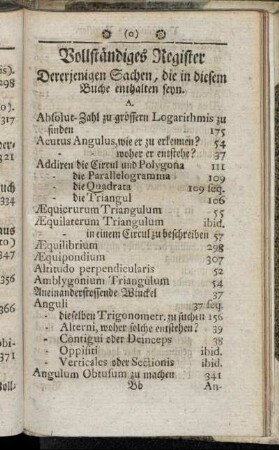 (0)
Vollständiges Register
Dererjenigen Sachen, die in diesem
Buche enthalten seyn.
A.
Absolut-Zahl zu grössern Logarithmis zu
finden 175
Acutus Angulus, wie er zu erkennen? 54
woher er entstehe? 37
Addiren die Circul und Polygona 111
- die Parallelogramma 109
- die Quadrata 109 seq.
- die Triangul 106
Æquicrurum Triangulum 55
Æquilaterum Triangulum ibid.
- in einem Circul zu beschreiben 57
Æquilibrium 298
Æquipondium 307
Altitudo perpendicularis 52
Amblygonium Triangulum 54
Aneinanderstossende Winckel 37
Anguli 37. seq.
- dieselben Trigonometr. zu suchen 156
- Alterni, woher solche entstehen? 39
- Contigui oder Deinceps 38
- Oppositi ibid.
- Verticales oder Sectionis ibid.
Angulum Obtusum zu machen 341
Bb An-